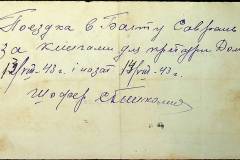 Поездка в Балту Саврань
за книгами для претури Дом
13/VIII-43 г. і назат 17/VIII-43 г.
Шофер